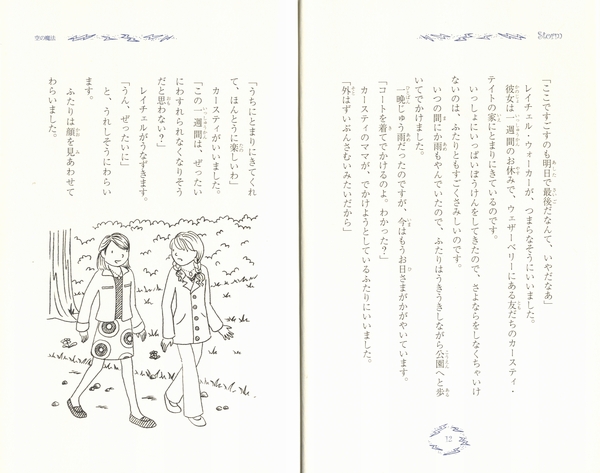 Storm
「ここですごすのも明日で最後だなんて、いやだなあ」
レイチェル・ウォーカーが、つまらなそうにいいました。
彼女は一週間のお休みで、ウェザーベリーにある友だちのカースティ・
テイトの家にとまりにきているのです。
いっしょにいっぱいぼうけんをしてきたので、さよならをしなくちゃいけ
ないのは、ふたりともすごくさみしいのです。
いつの間にか雨もやんでいたので、ふたりはうきうきしながら公園へと歩
いてでかけました。
一晩じゅう雨だったのですが、今はもうお日さまがかがやいています。
「コートを着てでかけるのよ。わかった？」
カースティのママが、でかけようとしているふたりにいいました。
「外はずいぶんさむいみたいだから」
12
空の魔法
「うちにとまりにきてくれ
て、ほんとうに楽しいわ」
カースティがいいました。
「この一週間は、ぜったい
にわすれられなくなりそう
だと思わない？」
レイチェルがうなずきます。
「うん、ぜったいに」
と、うれしそうにわらい
ます。
ふたりは顔を見あわせて
わらいました。